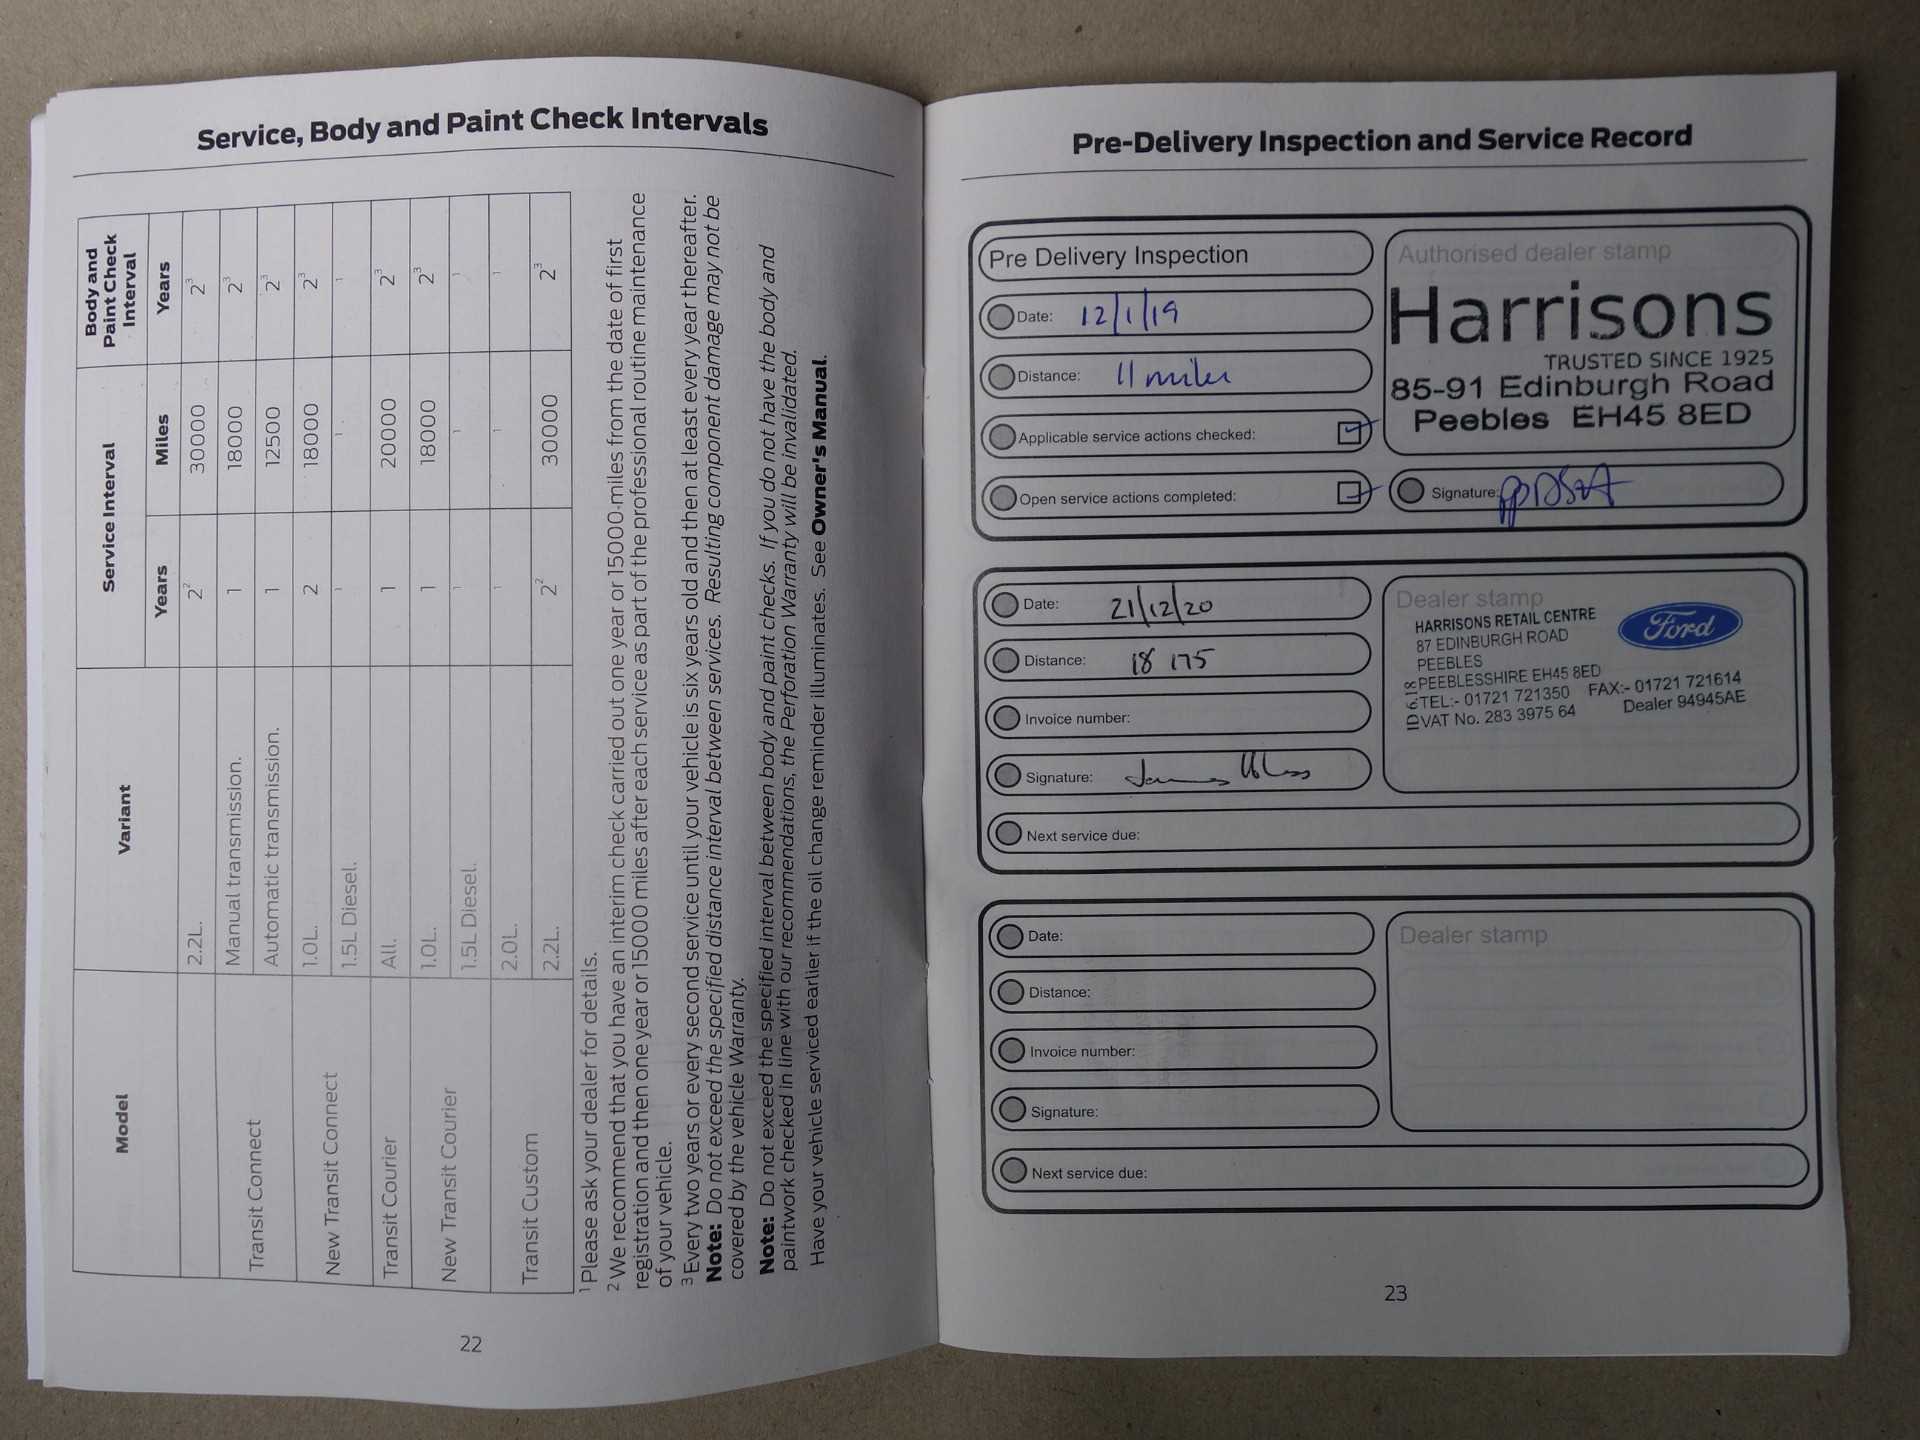 Service, Body and Paint Check Intervals
Model
Variant
Service Interval
Body and Paint Check Interval
Years
Miles
Years
2.2L.
2²
30000
2³
Transit Connect
Manual transmission.
1
18000
2³
Automatic transmission.
1
12500
2³
New Transit Connect
1.0L.
2
18000
2³
1.5L Diesel.
1
1
1
Transit Courier
All.
1
20000
2³
New Transit Courier
1.0L.
1
18000
2³
1.5L Diesel.
1
1
1
Transit Custom
2.0L.
1
1
1
2.2L.
2²
30000
2³
¹ Please ask your dealer for details.
² We recommend that you have an interim check carried out one year or 15000-miles from the date of first
registration and then one year or 15000 miles after each service as part of the professional routine maintenance
of your vehicle.
³ Every two years or every second service until your vehicle is six years old and then at least every year thereafter.
Note: Do not exceed the specified distance interval between services. Resulting component damage may not be
covered by the vehicle Warranty.
Note: Do not exceed the specified interval between body and paint checks. If you do not have the body and
paintwork checked in line with our recommendations, the Perforation Warranty will be invalidated.
Have your vehicle serviced earlier if the oil change reminder illuminates. See Owner's Manual.
22
Pre-Delivery Inspection and Service Record
Pre Delivery Inspection
Date: 12/1/19
Distance: 11 miles
Applicable service actions checked:
Open service actions completed:
Authorised dealer stamp
Harrisons
TRUSTED SINCE 1925
85-91 Edinburgh Road
Peebles EH45 8ED
Signature:
Date: 21/12/20
Distance: 18 175
Invoice number:
Signature:
Next service due:
Dealer stamp
HARRISONS RETAIL CENTRE
87 EDINBURGH ROAD
PEEBLES
PEEBLESSHIRE EH45 8ED
TEL:- 01721 721350 FAX:- 01721 721614
VAT No. 283 3975 64 Dealer 94945AE
Ford
Date:
Distance:
Invoice number:
Signature:
Next service due:
Dealer stamp
23